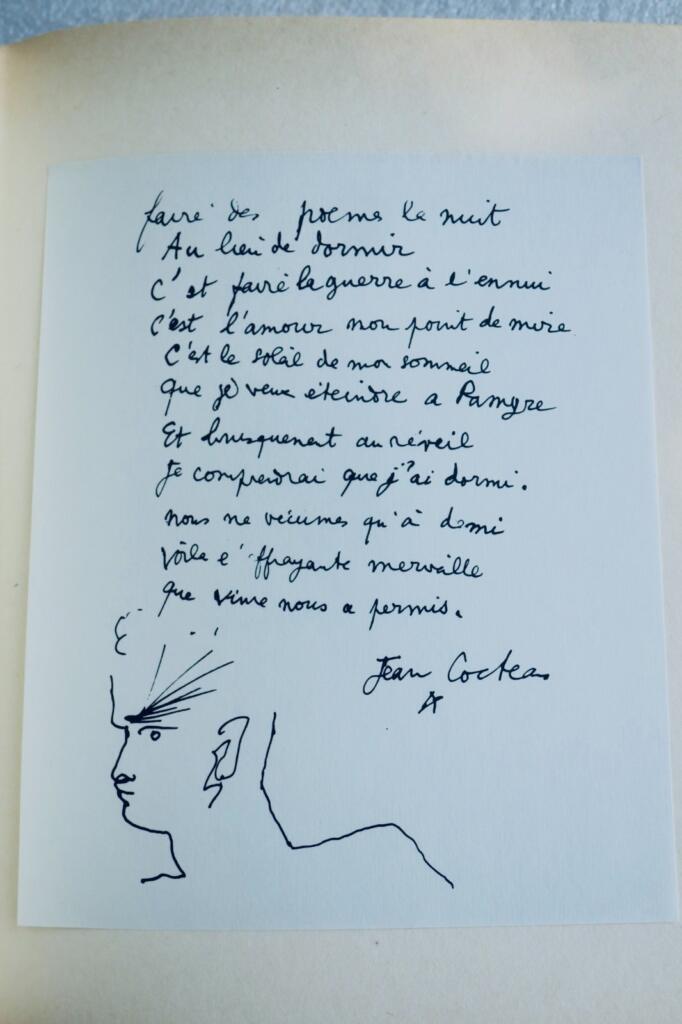 faire des poemes la nuit
Au lieu de dormir
C'est faire la guerre à l'ennui
C'est l'amour non point de mire
C'est le soleil de mon sommeil
que je veux éteindre a Pamyre
Et brusquement au réveil
Je comprendrai que j'ai dormi.
nous ne vécumes qu'à demi
voila l'effrayante merveille
que vivre nous a permis.
Jean Cocteau